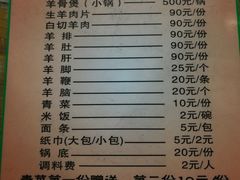 羊骨煲(小锅) 500元/锅
生羊肉片 90元/份
白切羊肉 90元/份
羊排 90元/份
羊肚 90元/份
羊肝 90元/份
羊脚 25元/个
羊鞭 20元/条
羊脑 20元/个
青菜 10元/份
米饭 2元/碗
面条 5元/包
纸巾(大包/小包) 5元/2元
锅底 20元/份
调料费 2元/人